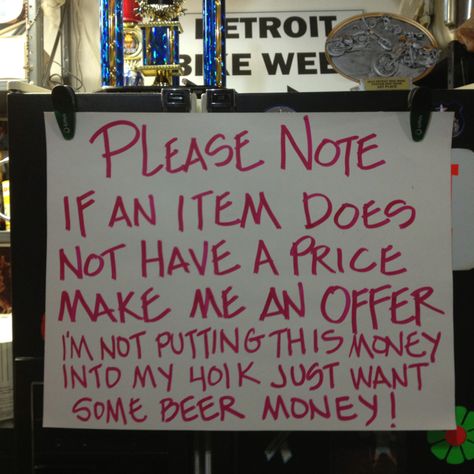 DETROIT
BIKE WEE
PLEASE NOTE
IF AN ITEM DOES
NOT HAVE A PRICE
MAKE ME AN OFFER
I'M NOT PUTTING THIS MONEY
INTO MY 401K JUST WANT
SOME BEER MONEY!